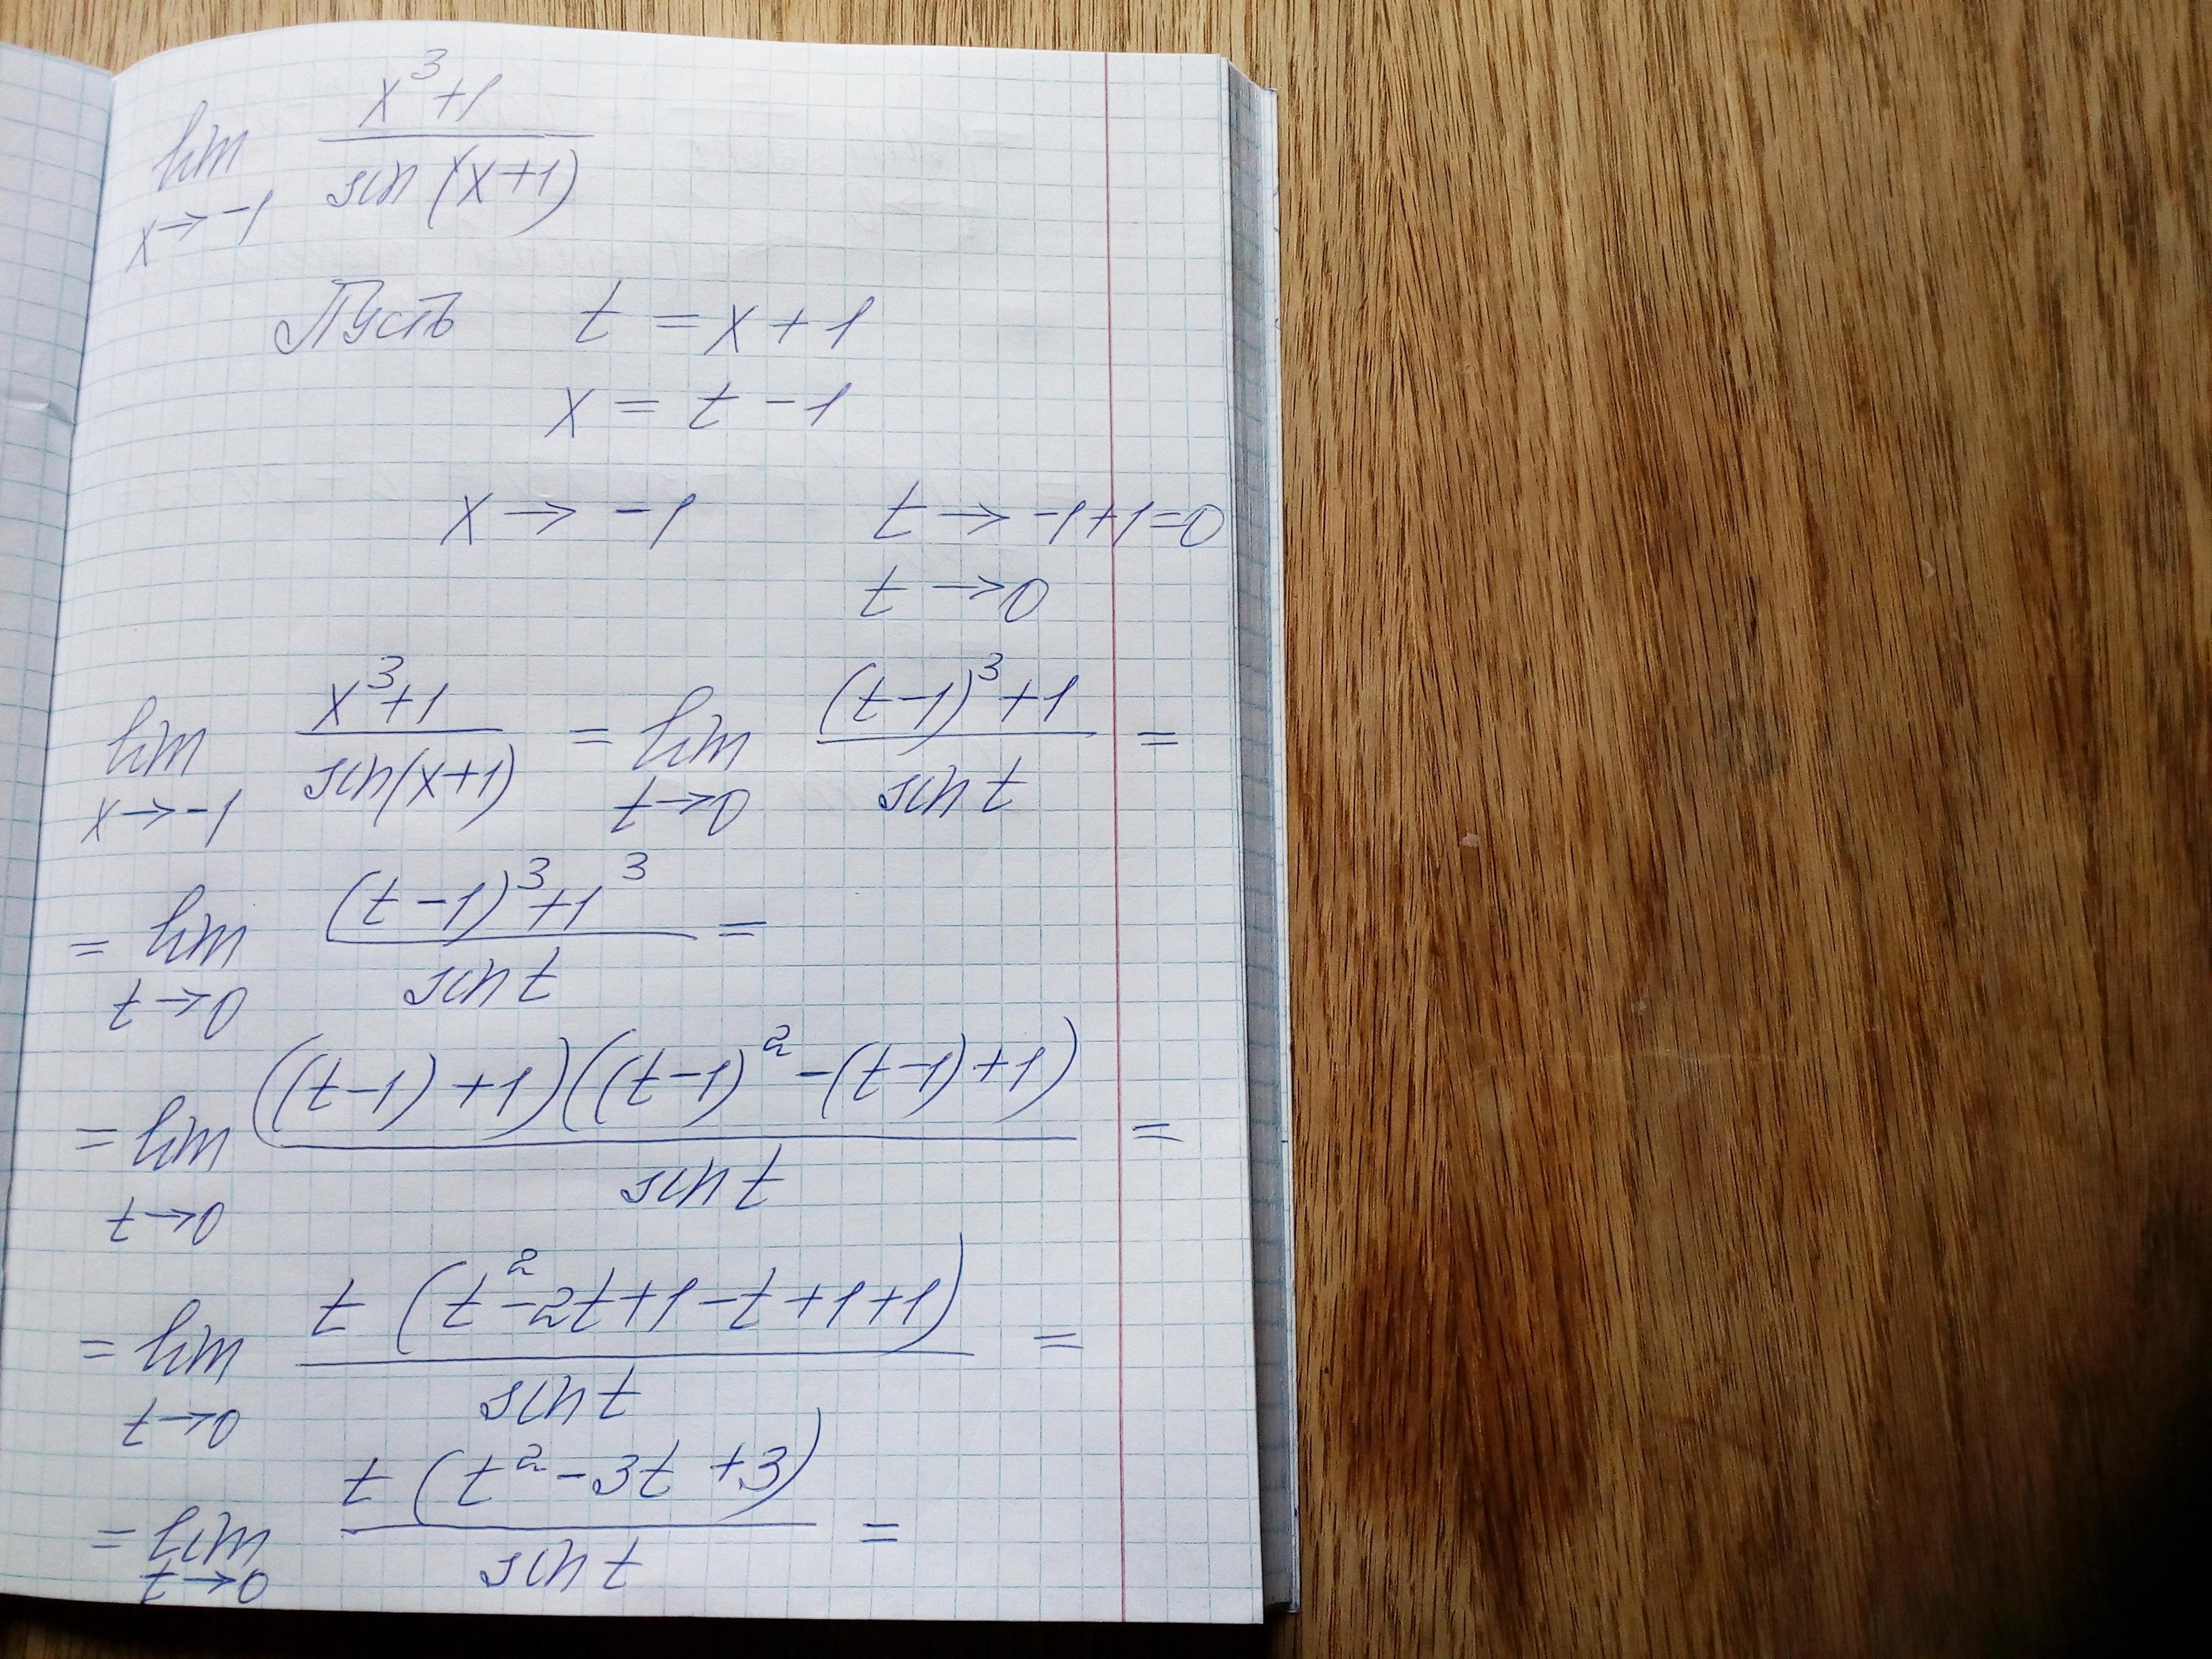 lim x→-1 (x³+1)/(sin(x+1))
Пусть t = x+1
x = t-1
x → -1 t → -1+1=0
t → 0
lim x→-1 (x³+1)/(sin(x+1)) = lim t→0 ((t-1)³+1)/(sin t) =
= lim t→0 ((t-1)³+1³)/(sin t) =
= lim t→0 (((t-1)+1)((t-1)²-(t-1)+1))/(sin t) =
= lim t→0 (t(t²-2t+1-t+1+1))/(sin t) =
= lim t→0 (t(t²-3t+3))/(sin t) =